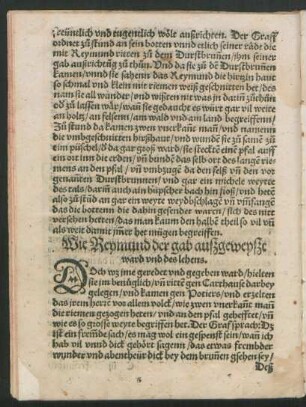 freüntlich vnd tugentlich wöle außrichten. Der Graff
ordnet zůstund an sein botten vnd etlich seiner räde die
mit Reymund ritten zů dem Durstbrunen jhm seiner
gab außrichtūg zů thůn. Vnd da sie zů dē Durstbrunnē
kamen / vnnd sie sahenn das Reymund die hirtzin haut
so schmal vnd klein mit riemen weiß geschnitten het / des
nam sie all wunder / vnd wisten nit was in darin zůthůn
od' zů lassen wär / wan sie gedaucht es würt gar vil weite
an holtz / an felsenn / am wald vnd am land begreiffenn /
Zů stund da kamen zwen vnerkāte man / vnd namenn
die vmbgeschnitten hirschaut / vnd wundē sie zů samē zů
eim püschel / δ da gar groß ward / sie stecktē einē pfal auff
ein ort inn die erden / vn̄ bundē das selb ort des langē rie=
mens an den pfal / vn̄ vmbzugē da den felß vn̄ den vor
genanten Durstbrunnen / vnd gar ein michele weyte
des tals / darin̄ auch ein hüpscher bach hin floß / vnd hetē
also zů stūd an gar ein weyte weydbschlagē vn̄ vm̄fangē
das die bottenn die damit gesandt waren / sich des nitt
versehen hetten / das man kaum den halbē theil so vil vn̄
als weit damit jm̄er het mügen begreiffen.
Wie Reymund der gab außgeweyßt
ward vnd des lehens.
Doch wz ime geredet vnd gegeben ward / hielten
sie im benüglich / vn̄ rittē gen Carthause darbey
gelegen / vnd kamen gen Potiers / vnd erzelten
das jrem herrē vor allem volck / wie zwen vnerkant man
die riemen gezogen hetten / vnd an den pfal gehefftet / vn̄
wie es so grosse weyte begriffen het. Der Graff sprach: Dz
ist ein frembde sach / es mag wol ein gespenst sein / wan̄ ich
hab vil vnnd dick gehört sagenn / das etwas frembder
wunder vnd abentheür dick bey dem brun̄en gesehen sey /
Deß